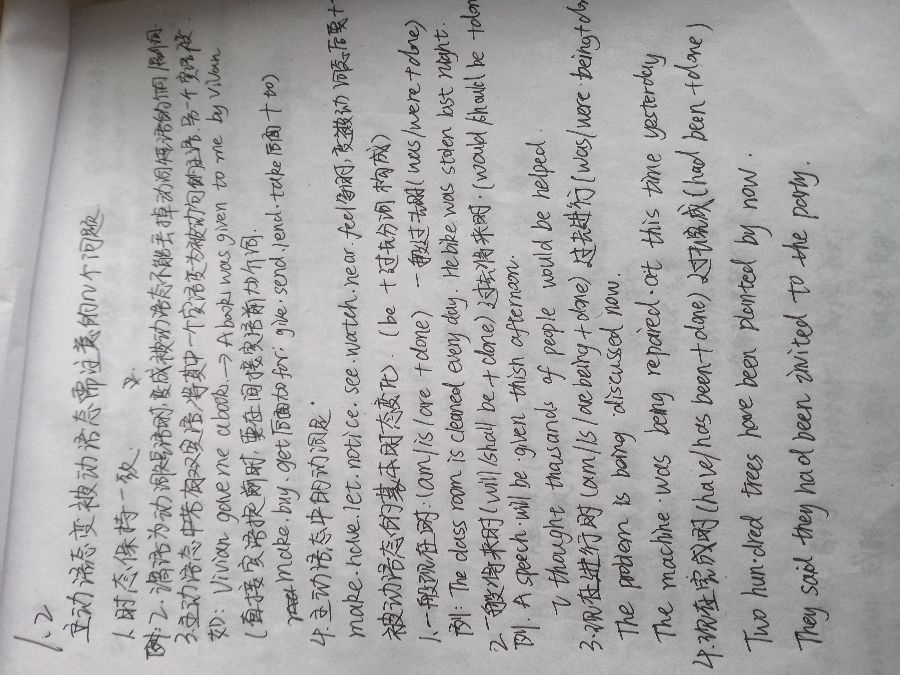 1.2
主动语态变被动语态需注意的几个问题.
1.时态保持一致.
例:2.谓语为动词短语时变成被动语态不能丢掉动词短语的介/副词
3.主动语态中常有双宾语,将其中一个宾语变为被动句的主语.另一个宾语放
如: Vivian gave me a book. → A book was given to me by Vivian
(直接宾语提前时,要在间接宾语前加介词.
make.buy.get后面加for give.send.lend.take后面+to)
4.主动语态中的动词是.
make.have.let.notice.see.watch.near.feel等时,变被动词态后要+
被动语态的基本时态变化. (be + 过去分词 构成)
1.一般现在时:(am/is/are +done) 一般过去时(was/were+done)
例: The class room is cleaned every day. He bike was stolen last night.
2.一般将来时(will/shall be +done) 过去将来时.(would/should be +done
例. A speech will be given thish afternoon.
I thought thausands of people would be helped.
3.现在进行时(am/is/are being+done) 过去进行(was/were being+done
The problem is being discussed now.
The machine was being repaired at this time yesterday
4.现在完成时(have/has been+done) 过去完成(had been +done)
Two hun.dred trees have been planted by now.
They said they had been invited to the party.